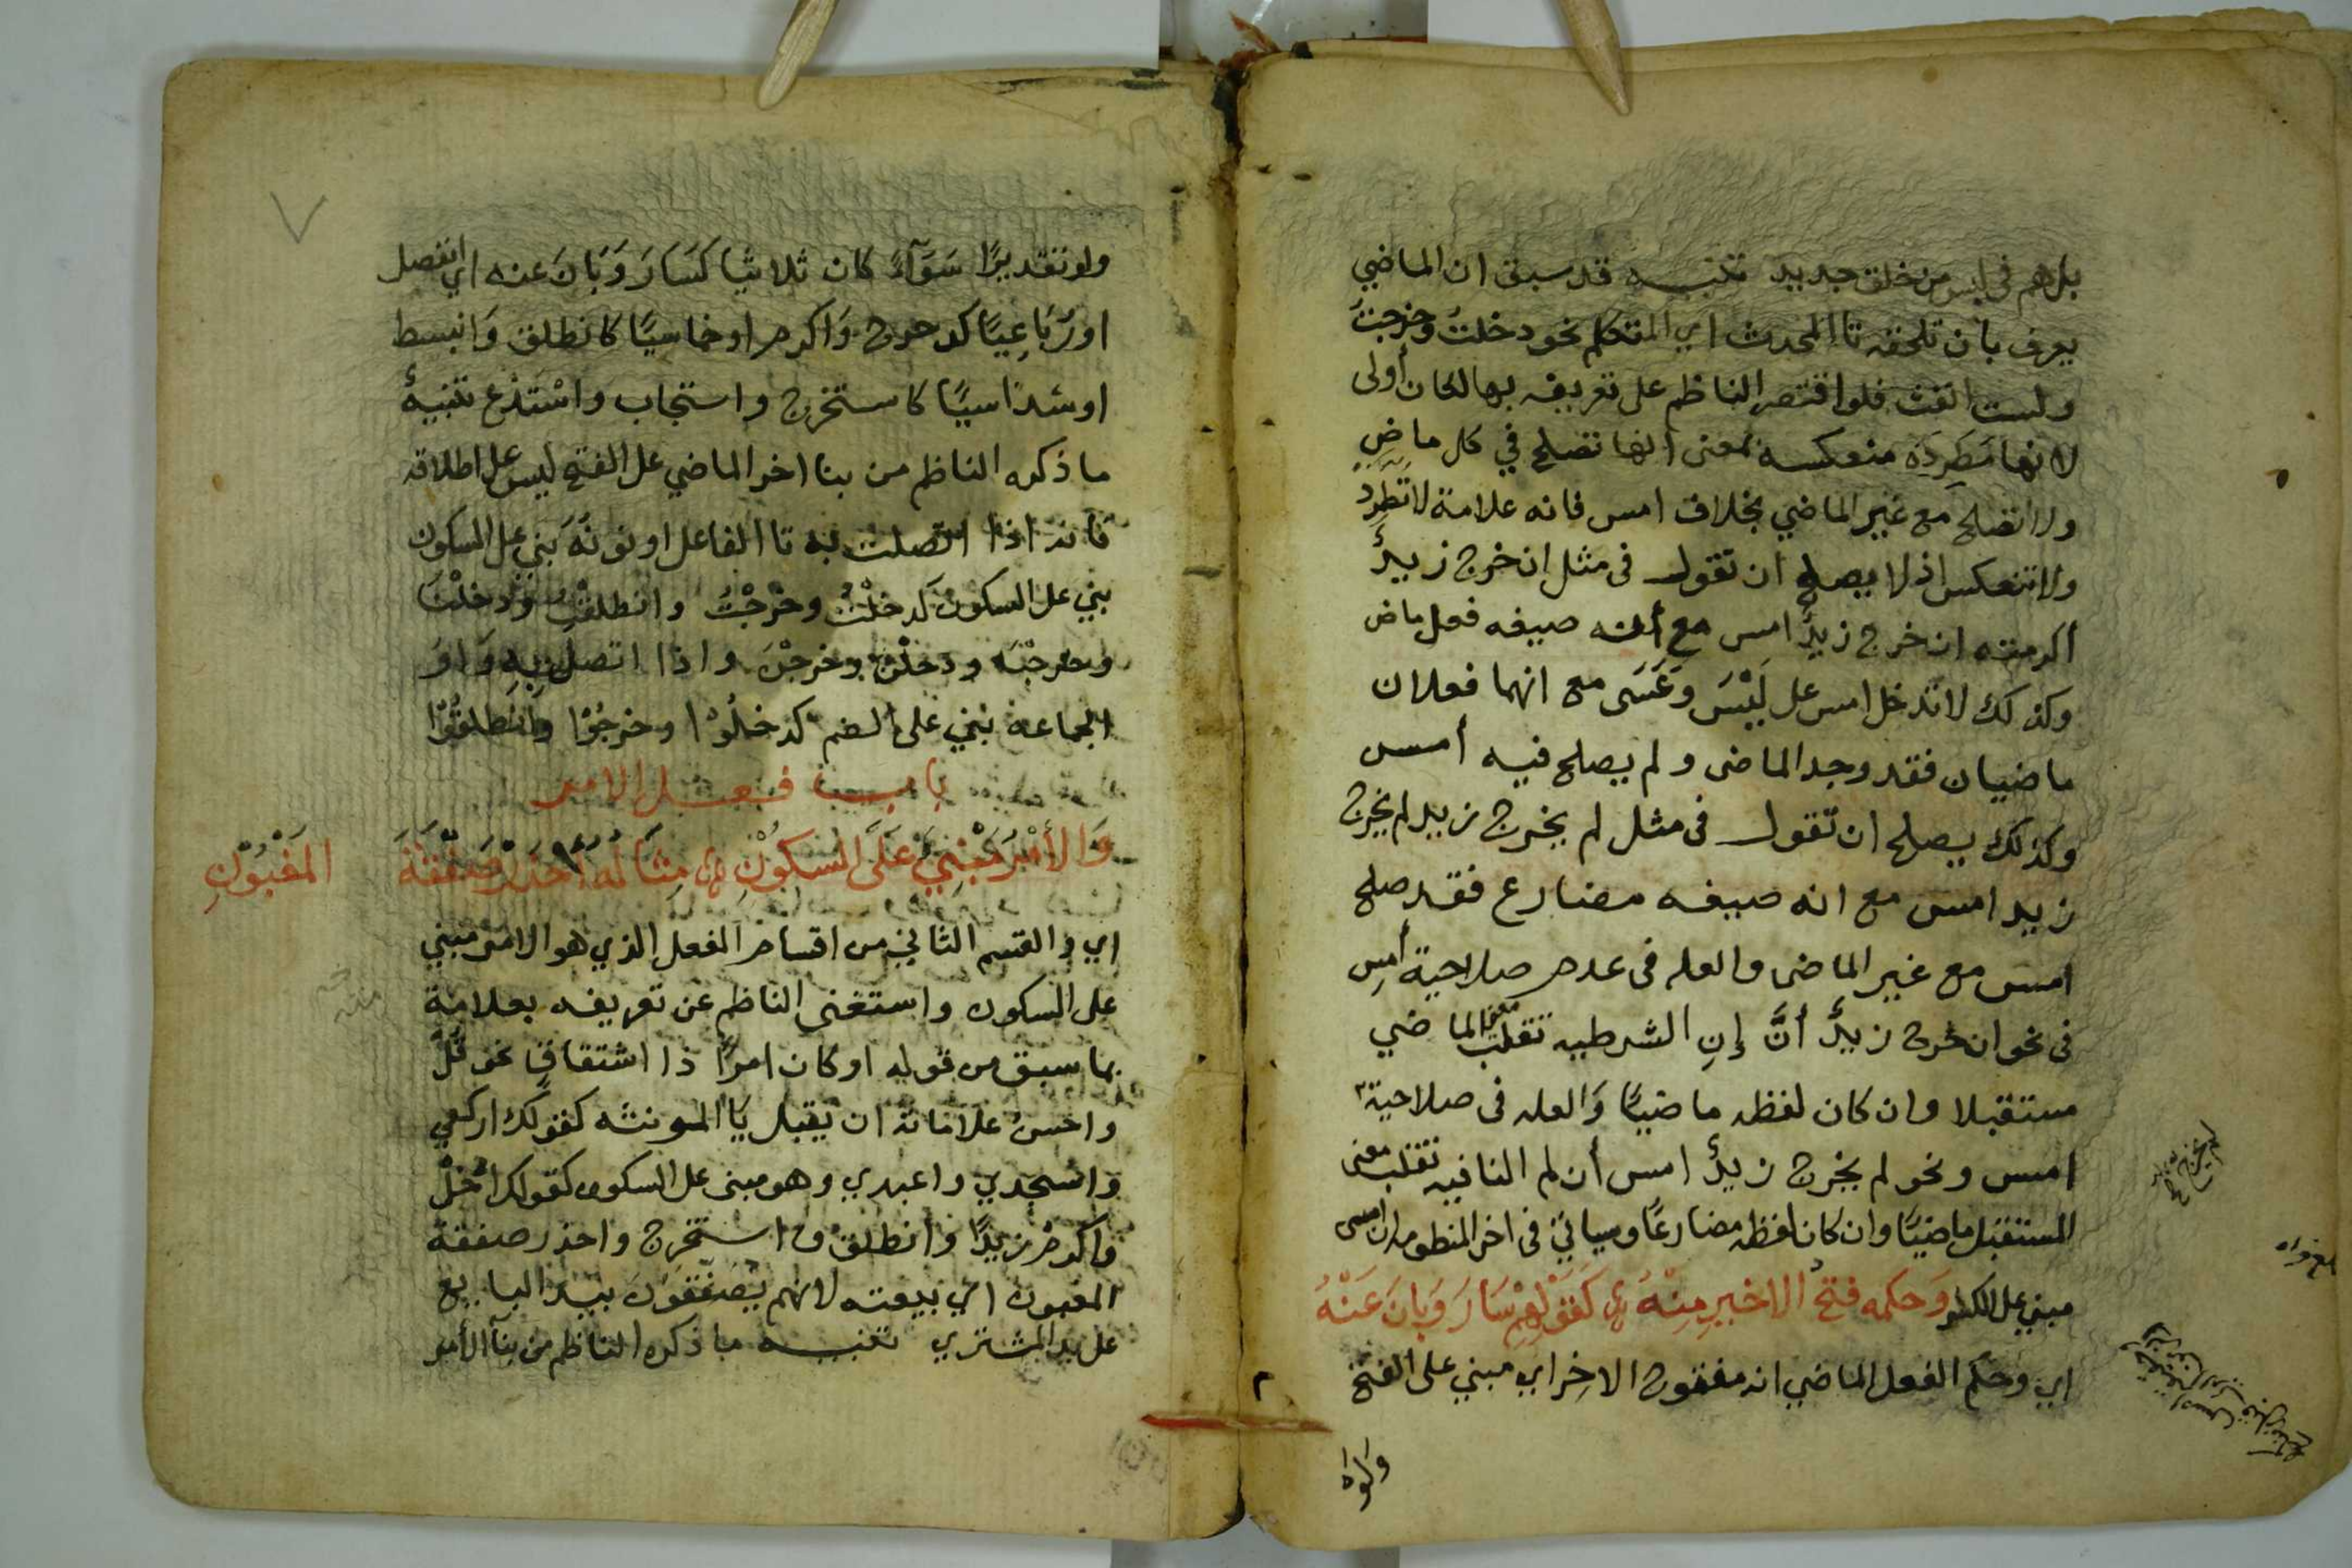 بل هم في لبس من خلق جديد تنبيه قد سبق ان الماضي
يعرف بان تلحقه تا المحدث اي المتكلم نحو دخلتُ وخرجتُ
ولست انفث فلو اقتصر الناظم على تعريفه بها لكان أولى
لانها مَطّرِدَة منعكسه بمعنى انها تصلح في كل ماضٍ
ولا تصلح مع غير الماضي بخلاف امس فانه علامة لا تَطَّرِد
ولا تنعكس اذ لا يصلح ان تقول فى مثل ان خرج زيدٌ
أكرمته ان خرج زيدٌ امس مع أنه صيغه فعل ماض
وكذلك لا تدخل امس على لَيْسَ وَعَسَى مع انهما فعلان
ماضيان فقد وجد الماضى ولم يصلح فيه أمس
وكذلك يصلح ان تقول فى مثل لم يخرج زيد لم يخرج
زيد امس مع انه صيغه مضارع فقد صلح
امس مع غير الماضى والعله فى عدم صلاحية أمسِ
فى نحو ان خرج زيدٌ أنَّ إنِ الشرطيه تقلب معنى الماضي
مستقبلا وان كان لفظه ماضيًا وَالعله فى صلاحية
امس ونحو لم يخرج زيدٌ امس أن لم النافيه تقلب معنى
المستقبل ماضيًا وان كان لفظه مضارعًا وسياتي فى اخر المنظومه ان امس
مبني على الكسر وَحكمه فتحُ الاخيرِ مِنْهُ كَقَوْلِهِمْ سَارَ وَبَانَ عَنْهُ
اي وحكم الفعل الماضي انه مفتوح الاخِر اي مبني على الفتح
ولو تقديرًا سَوَآءً كان ثلاثيا كَسَارَ وَبَانَ عنه اي انفصل
اورُبَاعِيًا كدحرج وَاكرم او خماسيًا كانطلق وَانبسط
او سداسيًا كاستخرج واستجاب واسْتدْع تنبيهٌ
ما ذكره الناظم من بنا اخر الماضي على الفتح ليس على اطلاقه
فانه اذا اتصلت به تا الفاعل او نونَهُ بني على السكون
بني على السكون كدخلْتُ وخرجْتُ وانطلقْتِ وَدخلْنَا
وخرجْنَا ودخلْن وخرجْنَ واذا اتصل به وَاوُ
الجماعه بني على الضم كدخلُوْا وخرجُوْا وانطلقُوْا
باب فعل الامر
وَالأَمْرُ مَبْنِيٌ عَلَى السُكُوْنِ مِثَالُهُ احْذَرْ صَفْقَةَ المَغْبُوْنِ
اي والقسم الثاني من اقسام الفعل الذي هو الامر مبني
على السكون واستغنى الناظم عن تعريفه بعلامة
بما سبق من قوله او كان امرًا ذا اشتقاقٍ نحو قُلْ
واحسنُ علاماته ان يقبل يَا المونثه كقولك اركعي
واسْجدي واعبدي وهو مبنى على السكون كقولك ادْخلْ
واكرمْ زيدًا وانطلقْ واستخرجْ واحذر صفقة
المغبون اي بيعته لانهم يُصفّقوْنَ بيد البايع
على يد المشتري تنبيه ما ذكره الناظم من بنآ الأمر